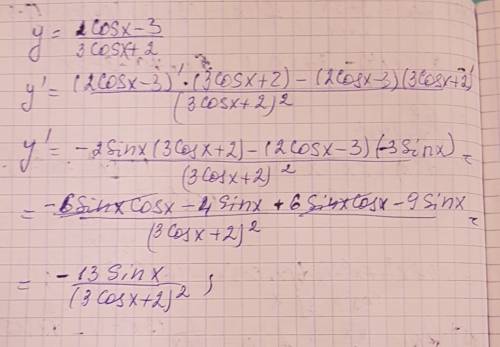 y = 2cosx-3 / 3cosx+2
y' = (2cosx-3)' · (3cosx+2) - (2cosx-3)(3cosx+2)' / (3cosx+2)²
y' = -2sinx(3cosx+2) - (2cosx-3)(-3sinx) / (3cosx+2)² =
= -6sinxcosx - 4sinx + 6sinxcosx - 9sinx / (3cosx+2)² =
= -13sinx / (3cosx+2)² ;